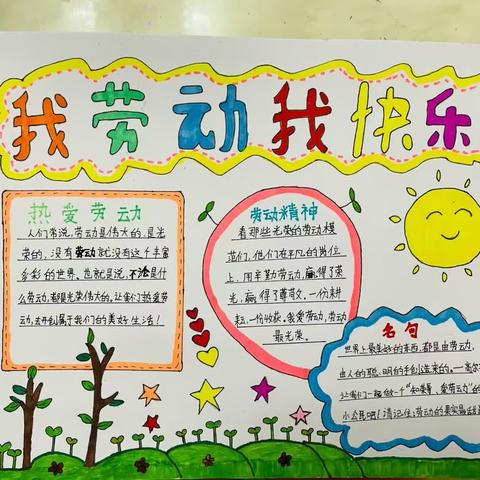 我劳动我快乐
热爱劳动
人们常说,劳动是伟大的,是光
荣的,没有劳动就没有这个丰富
多彩的世界。也就是说,不论是什
么劳动,都是光荣伟大的,让我们热爱劳
动,去开创属于我们的美好生活!
劳动精神
看那些光荣的劳动模
范们,他们在平凡的岗位
上,用辛勤劳动,赢得了荣
光,赢得了尊敬。一份耕
耘,一份收获。我爱劳动,劳动
最光荣。
名句
世界上最美好的东西,都是由劳动,
由人的聪明的手创造来的。—高尔
让我们一起做一个"知荣辱、爱劳动"的
小公民吧!请记住:劳动的果实最